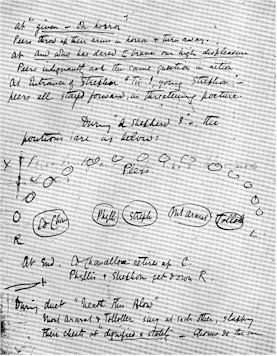 at "given - Oh horror"
Peers throw up their arms in horror & turn away.
at And who has dared to brave our high displeasure
Peers indignantly ask the same question in action
at Entrance of Strephon "'Tis I young Strephon" -
peers all step forward, in threatening posture.
During "A Shepherd I" - the
positions are as below:
X
Peers
Ld Chan
Phyll
Streph
Mt Ararat
Tolloller
R
L
At End Ld Chancellor retires up C.
Phyllis & Strephon get down R
During duet "Neath this blow"
Mount Ararat & Tolloller sing at each other, slapping
their chests at "dignified & stately" - Chorus do the same